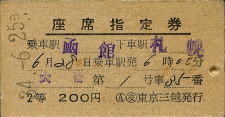 座席指定券
乗車駅 函館 下車駅 札幌
6月28日乗車駅発6時05分
第1号車85番
2等 200円 東京三越発行
24.-6.25